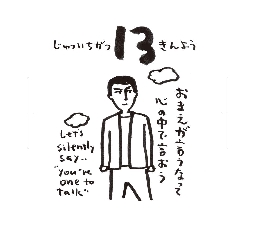 じゅういちがつ 13 きんよう
おまえが言うなって
心の中で言おう
Let's
silently
say..
"you're
one to
talk"